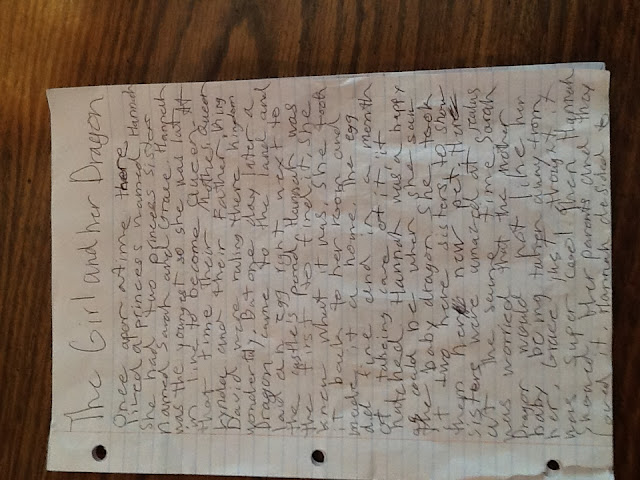 The Girl and her Dragon
Once apon a time there
lived a princes named Hannah
she had two princess sister
named Sarah and Grace Hannah
was the youngest so she was last
in line to become Queen. At
that time their Mother Queen
and their Father King
David were ruling there kingdom
wonderfuly. But one day later a
Dragon came to the land and
laid an egg right next to
the castle's pond Hannah was
the first to find it she
knew what it was. She took
it back to her room and
made it a home the egg
did fine and in a month
of taking care of it it
hatched Hannah was a happy
as could be when she saw
the baby dragon. She took
it two here sisters to show
them her new pet the
sisters were amazed at
at the same time Sarah
was worried that the Mother
Dragon would not like her
baby being taken away from
her, Grace just thought it
was super cool. When Hannah
showed her parents and they
loved it. Hannah desided to